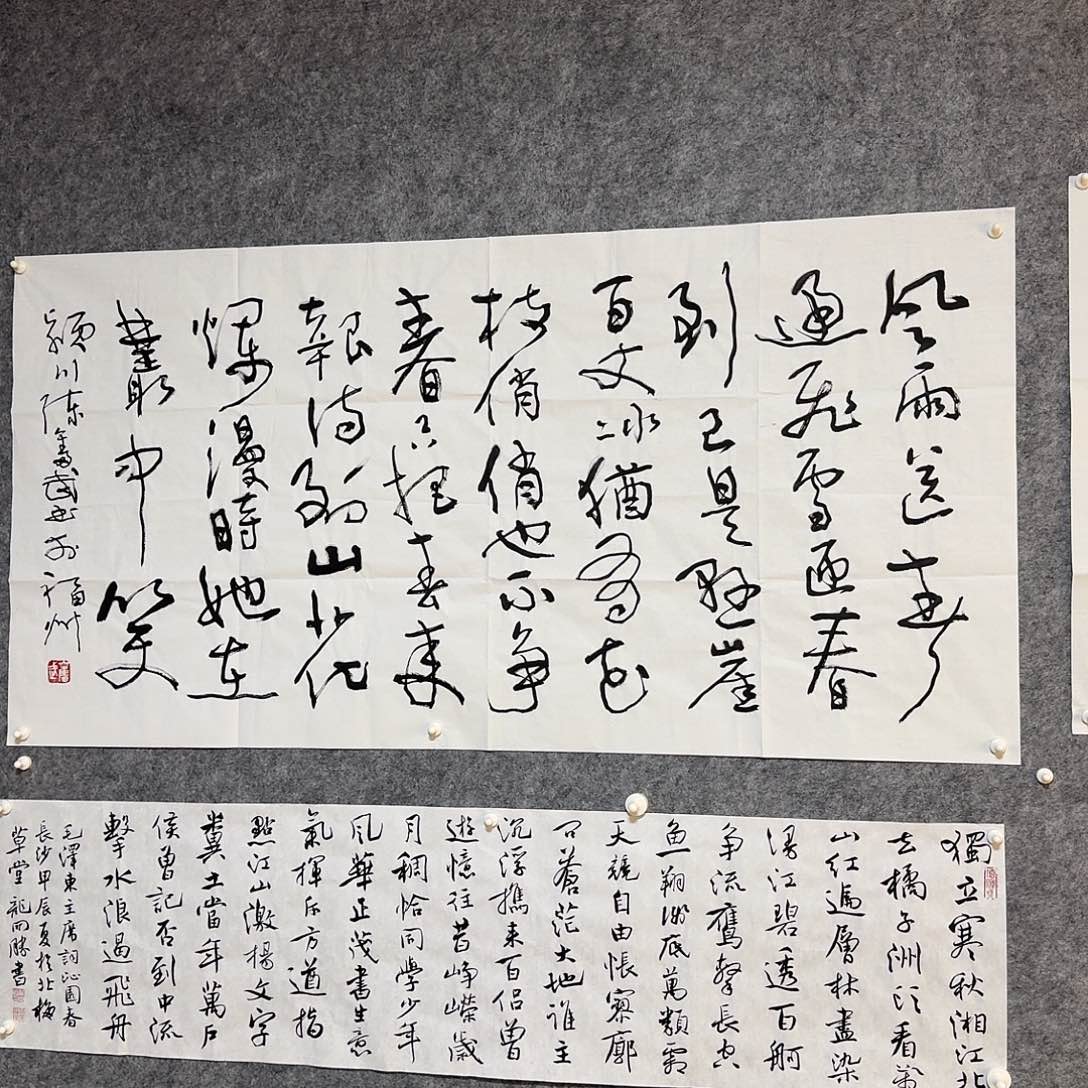 风雨送春
歸飛雪迎春
到已是懸崖
百丈冰猶有花
枝俏俏也不争
春只把春来
報待到山花
爛漫時她在
叢中笑
潁川陳書於福州
獨立寒秋湘江北
去橘子洲頭看萬
山紅遍層林盡染
漫江碧透百舸
争流鷹擊長空
魚翔淺底萬類霜
天競自由悵寥廓
問蒼茫大地誰主
沉浮攜來百侣曾
遊憶往昔崢嶸歲
月稠恰同學少年
風華正茂書生意
氣揮斥方遒指
點江山激揚文字
糞土當年萬户
侯曾記否到中流
擊水浪遏飛舟
毛澤東主席詞沁園春
長沙甲辰夏於北梅
草堂龍勝書